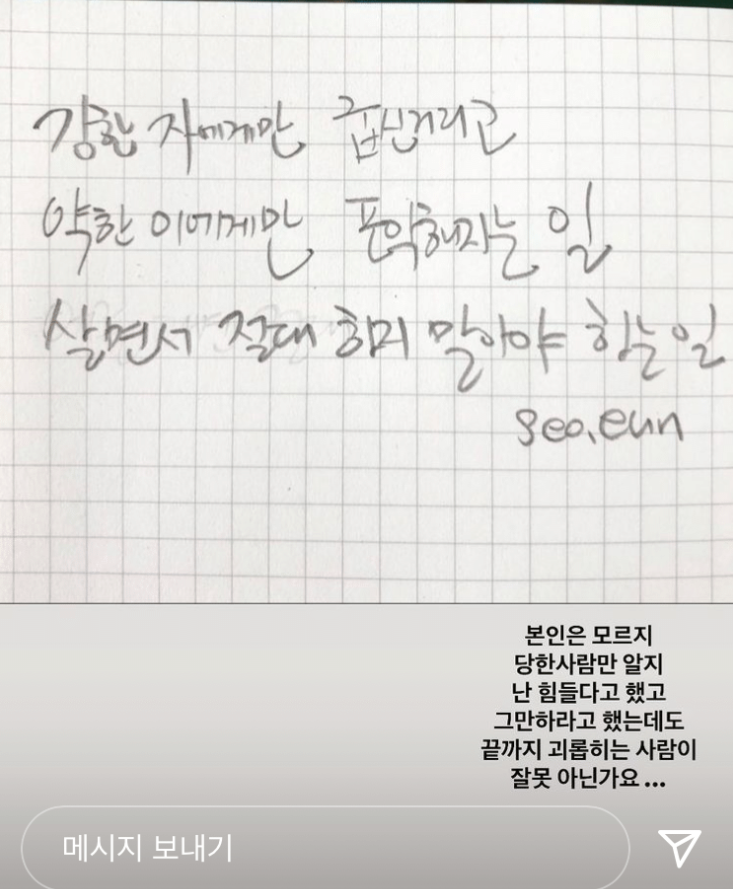 강한 자에게만 굽신거리고
약한 이에게만 포악해지는 일
살면서 절대 하지 말아야 하는 일
seo.eun
본인은 모르지
당한사람만 알지
난 힘들다고 했고
그만하라고 했는데도
끝까지 괴롭히는 사람이
잘못 아닌가요 ...
메시지 보내기